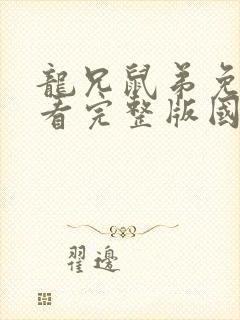 龍兄鼠弟免
看完整版國
翟邊